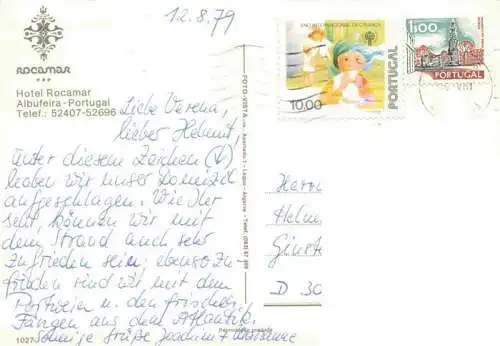 12.8.79
ROCAMAR
Hotel Rocamar
Albufeira - Portugal
Telef.: 52407-52696
Liebe Verena,
lieber Helmut,
unter diesem Zeichen (↓)
haben wir unser Domizil
aufgeschlagen. Wie Ihr
seht, können wir mit
dem Strand auch sehr
zufrieden sein; ebenso zu-
frieden sind wir mit dem
Portwein u. den frischen
Fängen aus dem Atlantik.
Sonnige Grüße Joachim +
1027
FOTO-VISTA
ANO INTERNACIONAL DA CRIANÇA
10.00
PORTUGAL
1$00
PORTUGAL
Herrn
Helm
Günth
D 30